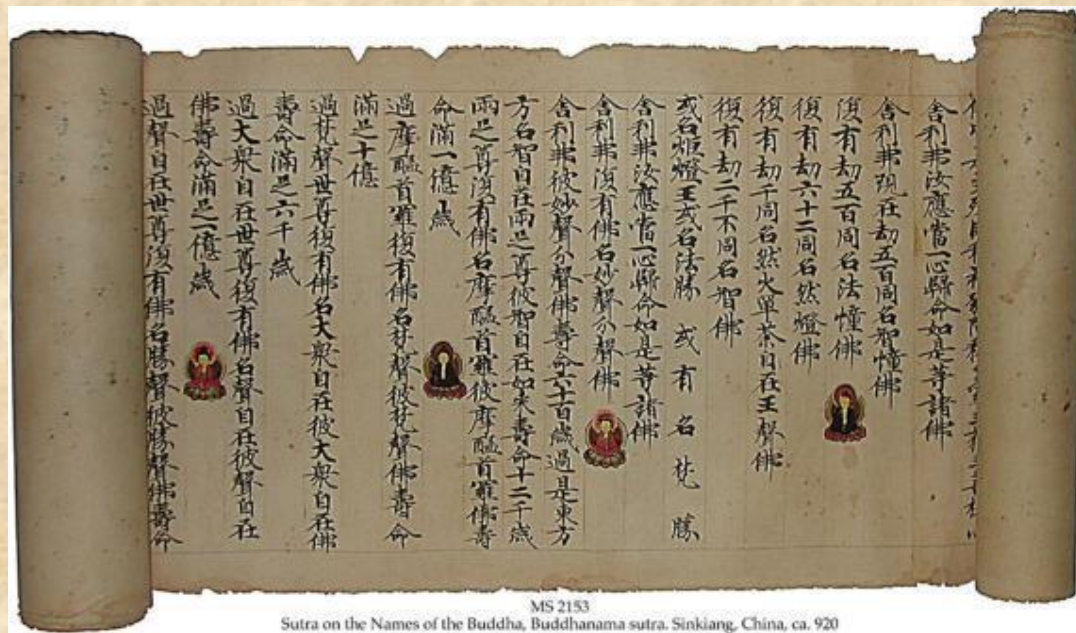 舍利弗汝應當一心歸命如是等諸佛
舍利弗現在劫五百同名智幢佛
復有劫五百同名法憧佛
復有劫六十二同名然燈佛
復有劫千同名然火單荼自在王聲佛
復有劫二千不同名智佛
或名炬燈王或名法勝 或有名梵勝
舍利弗汝應當一心歸命如是等諸佛
舍利弗復有佛名妙聲分聲佛
舍利弗彼妙聲分聲佛壽命六十百歲過是東方
方名智自在兩足之尊彼智自在如来壽命十二千歲
兩足之尊復有佛名摩醯首羅彼摩醯首羅佛壽
命滿一億歲
過摩醯首羅復有佛名梵聲彼梵聲佛壽命
滿足十億
過梵聲世尊復有佛名大衆自在彼大衆自在佛
壽命滿足六千歲
過大衆自在世尊復有佛名聲自在彼聲自在
佛壽命滿足一億歲
過聲自在世尊復有佛名勝聲彼勝聲佛壽命
MS 2153
Sutra on the Names of the Buddha, Buddhanama sutra. Sinkiang, China, ca. 920